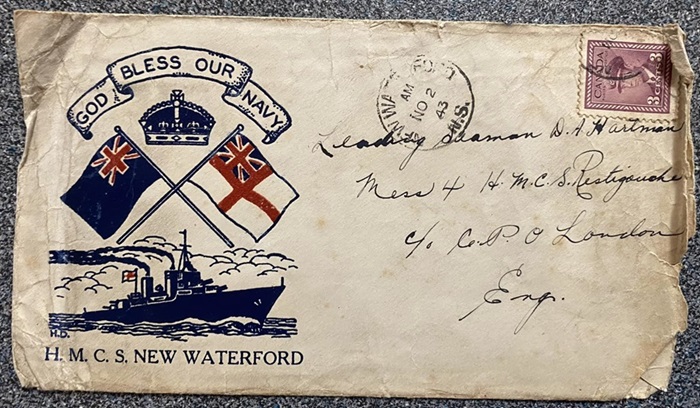 GOD BLESS OUR NAVY
NEW WATERFORD
AM
NO 2
43
N.S.
CANADA
3 3
Leading Seaman D. A. Hartman
Mess 4 H.M.C.S. Restigouche
c/o G.P.O London
Eng.
H.D.
H. M. C. S. NEW WATERFORD